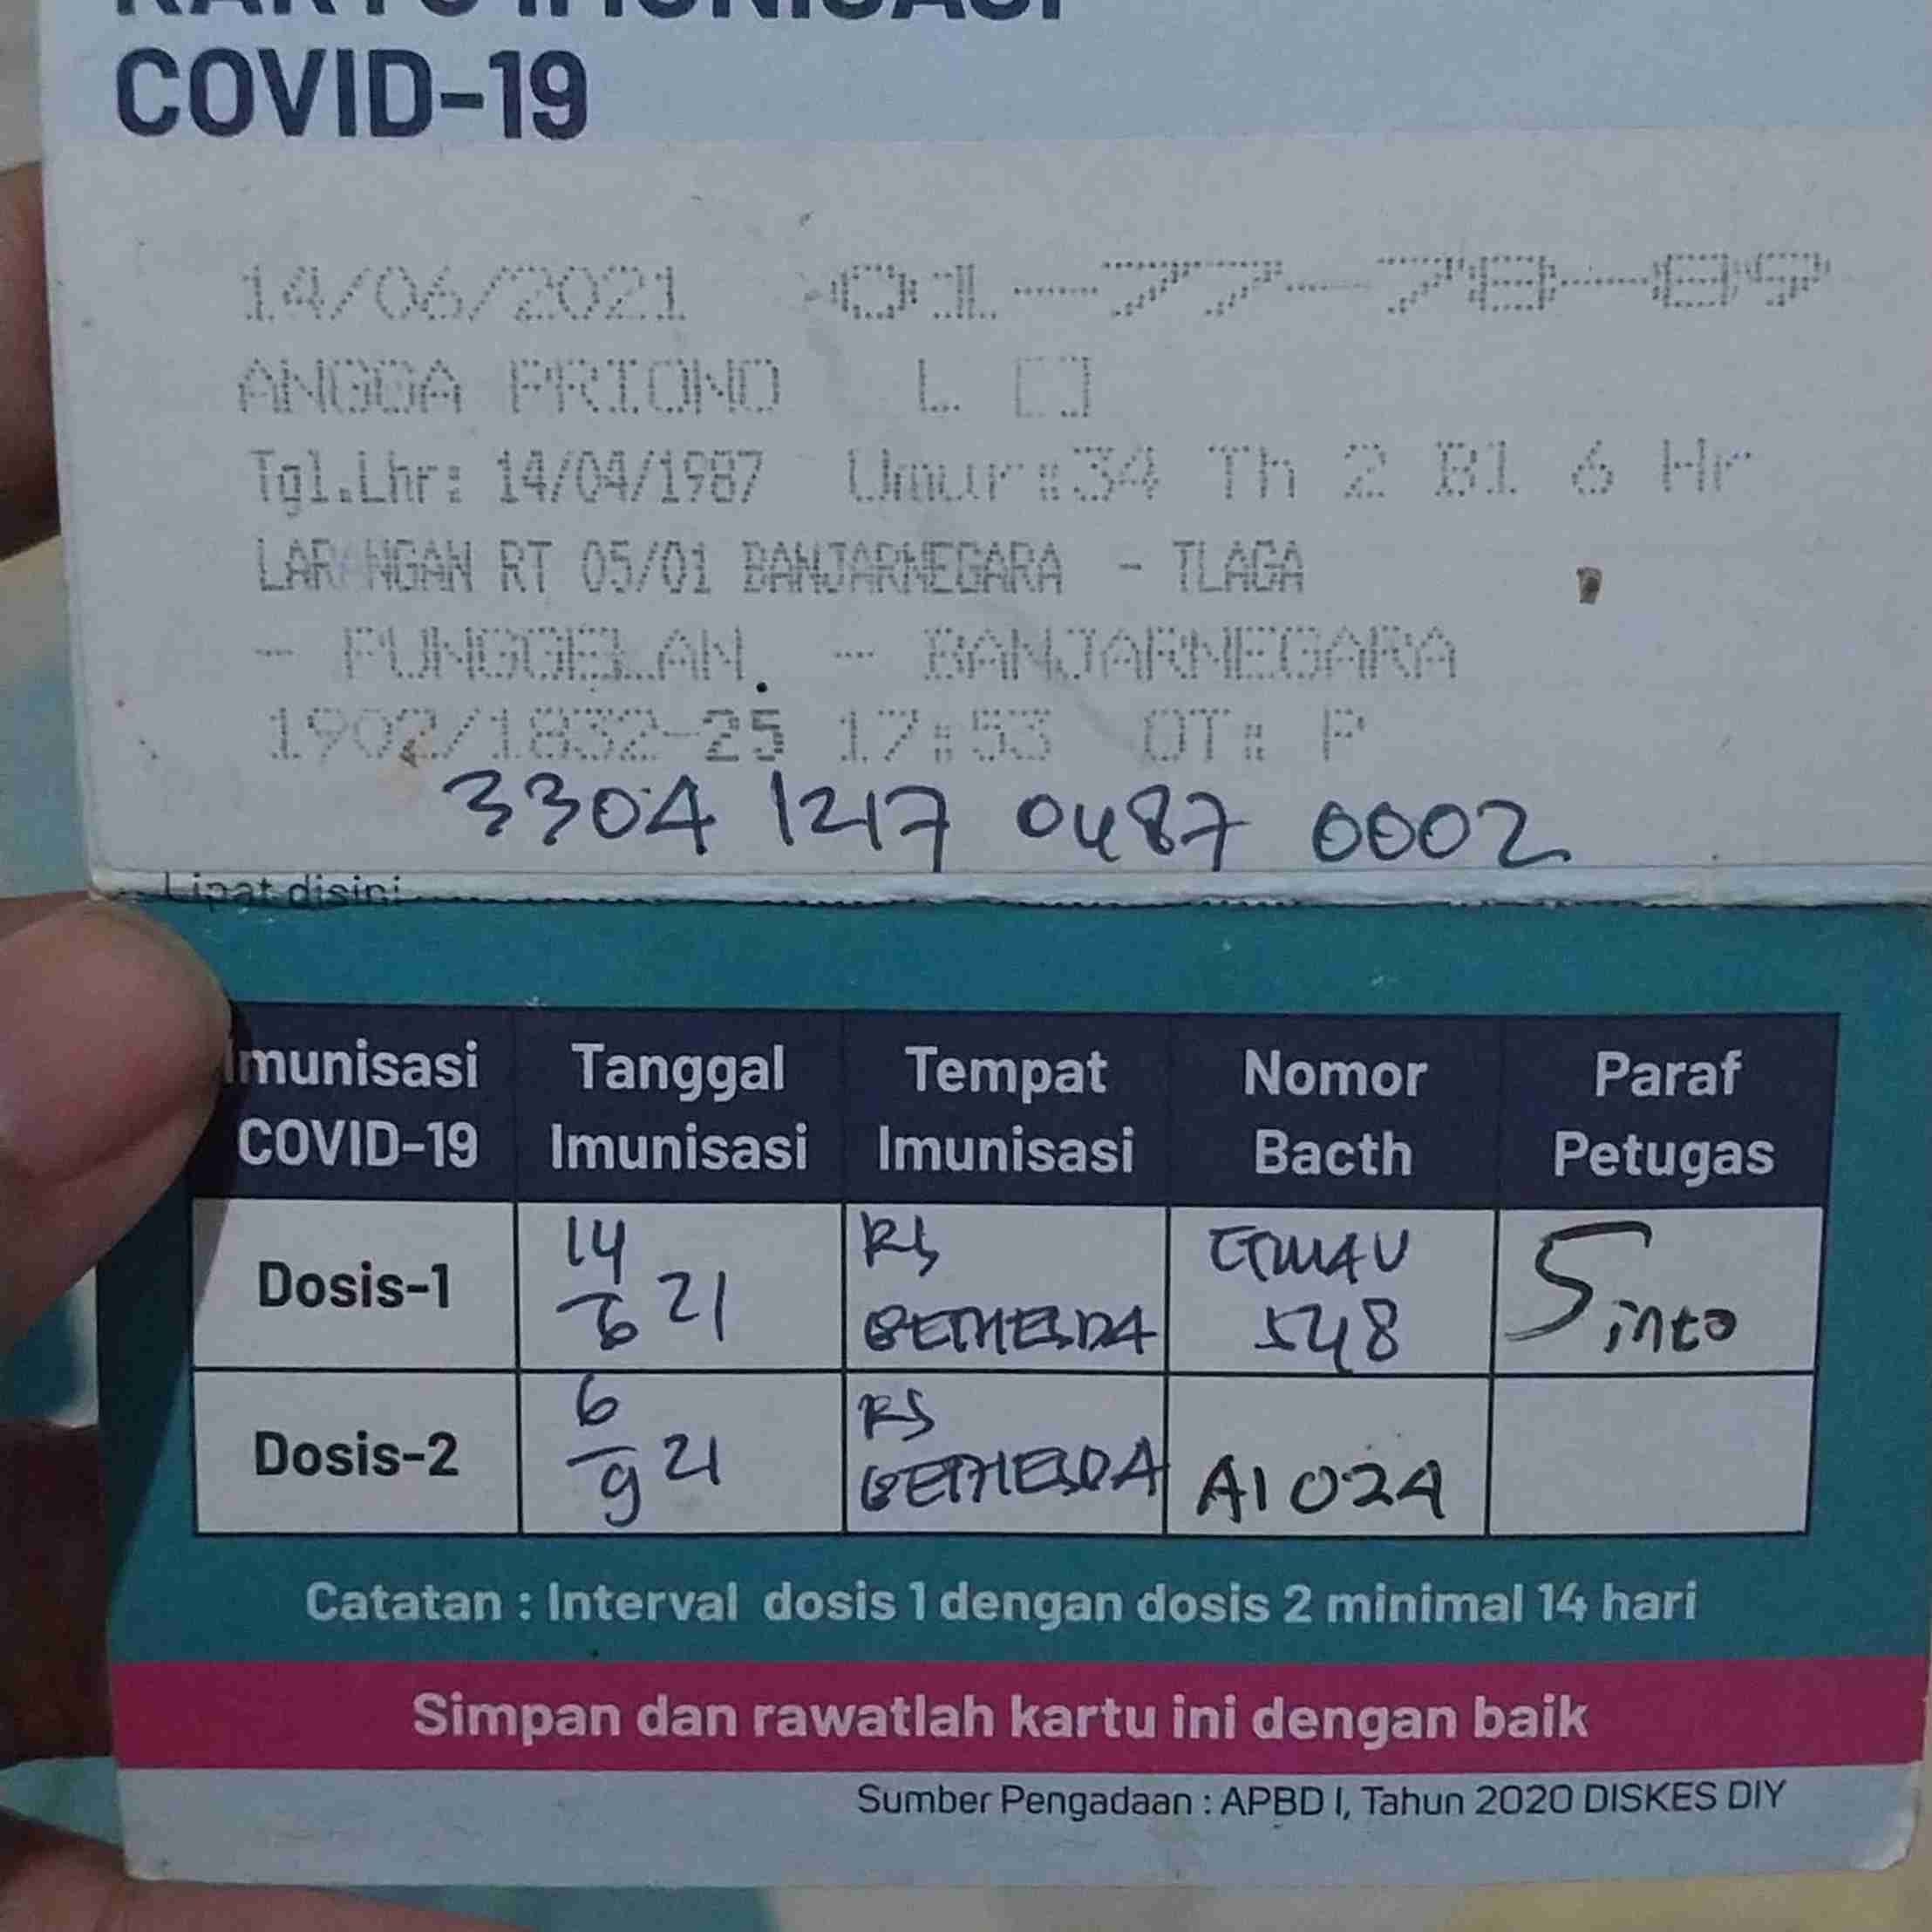 KARTU IMUNISASI
COVID-19
14/06/2021 01-77-78-89
ANGGA PRIONO L []
Tgl.Lhr: 14/04/1987 Umur:34 Th 2 Bl 6 Hr
LARANGAN RT 05/01 BANJARNEGARA - TLAGA
- PUNGGELAN. - BANJARNEGARA
1902/1832-25 17:53 OT: P
3304 1217 0487 0002
Lipat disini
Imunisasi COVID-19 Tanggal Imunisasi Tempat Imunisasi Nomor Bacth Paraf Petugas
Dosis-1 14/6 21 RS BETHESDA 548 Sinto
Dosis-2 6/9 21 RS BETHESDA A1024
Catatan : Interval dosis 1 dengan dosis 2 minimal 14 hari
Simpan dan rawatlah kartu ini dengan baik
Sumber Pengadaan : APBD I, Tahun 2020 DISKES DIY